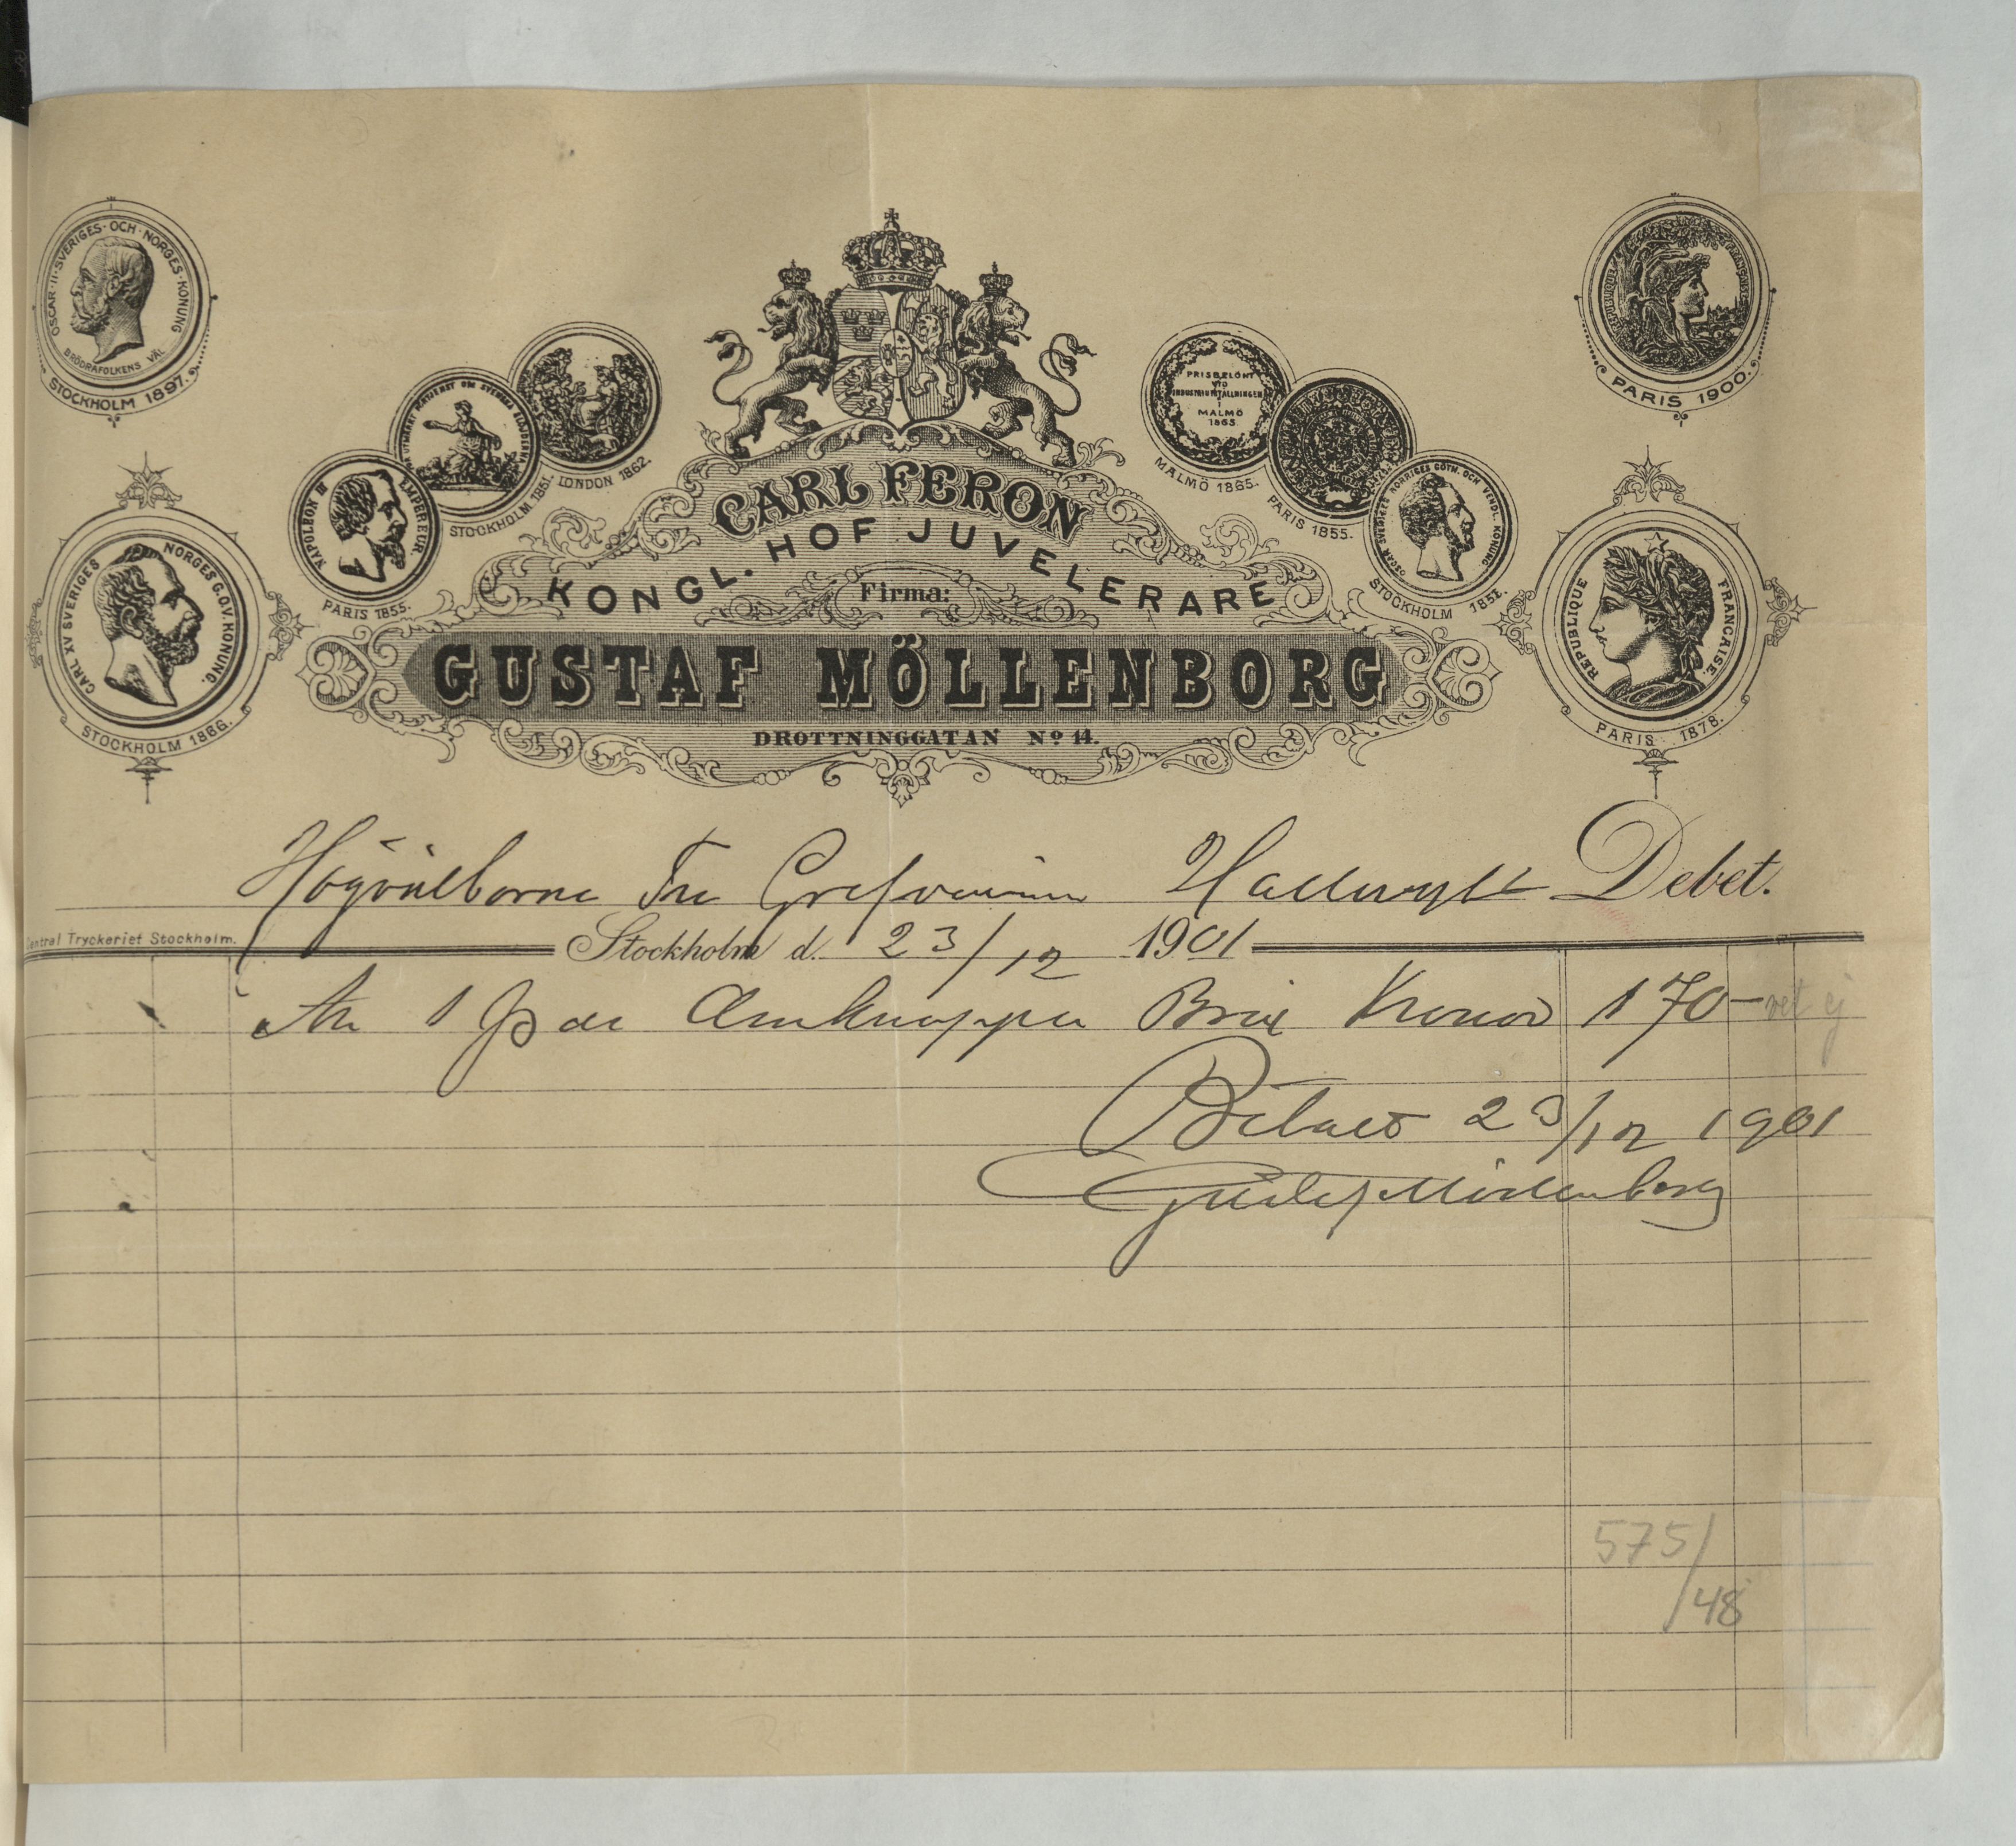 OSCAR·II·SVERIGES·OCH·NORGES·KONUNG
BRÖDRAFOLKENS VÄL
STOCKHOLM 1897.
CARL XV SVERIGES NORGES G.O.V. KONUNG.
STOCKHOLM 1866.
NAPOLEON III EMPEREUR
PARIS 1855.
STOCKHOLM 1851.
LONDON 1862.
CARL FERON
KONGL. HOF JUVELERARE
Firma:
GUSTAF MÖLLENBORG
DROTTNINGGATAN No 14.
PRISBELÖNT
VID
INDUSTRIUTSTÄLLNINGEN
I
MALMÖ
1865
MALMÖ 1865.
PARIS 1855.
OSCAR SVERIGES NORRIGES GÖTH. OCH VENDL. KONUNG
STOCKHOLM 1851.
PARIS 1900.
REPUBLIQUE FRANCAISE.
PARIS 1878.
Högvälborna Fru Grefvinnan Hallwyll Debet.
Central Tryckeriet Stockholm.
Stockholm d. 23/12 1901
An 1 Par Armknappar Brix Kronor 170- vet ej
Betalt 23/12 1901
Gustaf Möllenborg
575/
/48